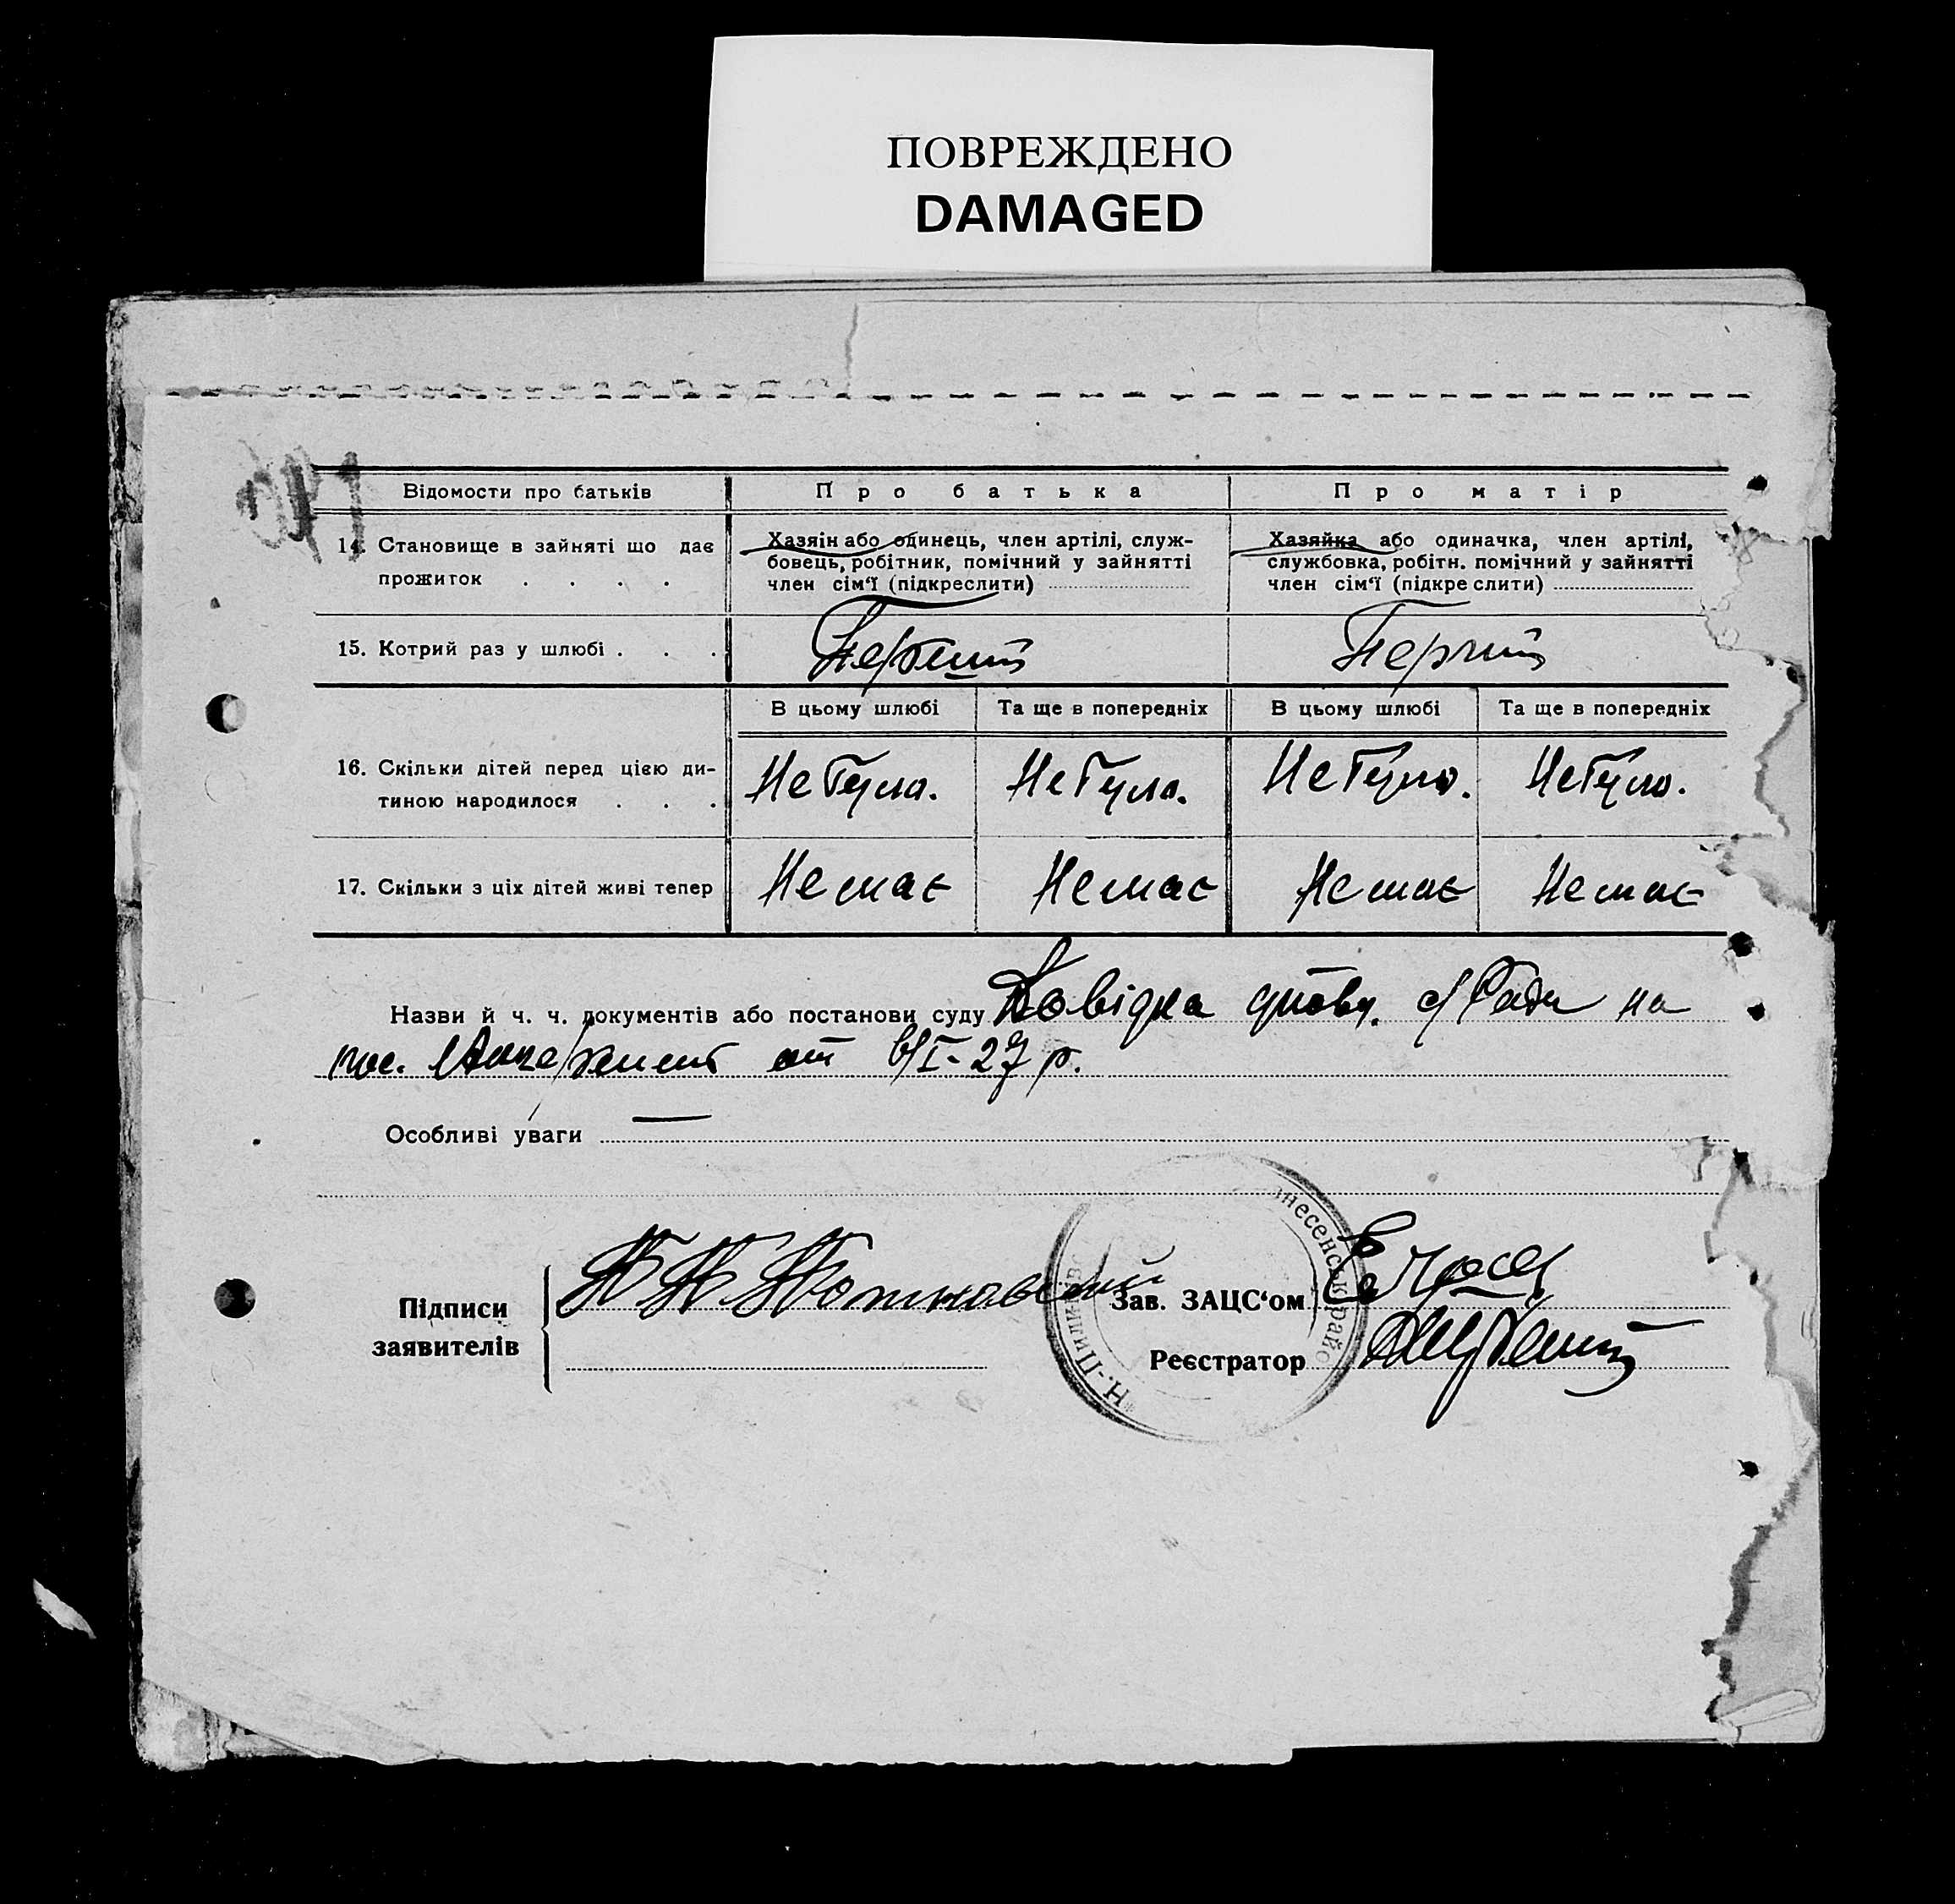 ПОВРЕЖДЕНО
DAMAGED
Відомости про батьків
Про батька
Про матір
14. Становище в зайняті що дає
прожиток . . . .
Хазяін або одинець, член артілі, служ-
бовець, робітник, помічний у зайнятті
член сім‘ї (підкреслити)
Хазяйка або одиначка, член артілі,
службовка, робітн. помічний у зайнятті
член сім‘ї (підкре слити)
15. Котрий раз у шлюбі . . .
Перший
Перший
В цьому шлюбі
Та ще в попередніх
В цьому шлюбі
Та ще в попередніх
16. Скільки дітей перед цією ди-
тиною народилося . . .
Не було.
Не було.
Не було.
Не було.
17. Скільки з ціх дітей живі тепер
Не має
Не має
Не має
Не має
Назви й ч. ч. документів або постанови суду Довідка с/Ради на
от 6/I-27 р.
Особливі уваги —
Підписи
заявителів
Зав. ЗАЦС‘ом
Реєстратор
несенськ райо
Н.-Пилипів